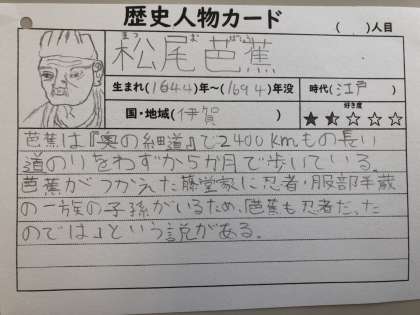 歴史人物カード
(　　)人目
まつ　お　ば　しょう
松尾芭蕉
生まれ(1644)年～(1694)年没
時代(江戸　)
国・地域(伊賀　)
好き度
★★☆☆☆
芭蕉は『奥の細道』で2400kmもの長い
道のりをわずか5か月で歩いている。
芭蕉がつかえた藤堂家に忍者・服部半蔵
の一族の子孫がいるため、「芭蕉も忍者だった
のでは」という説がある。